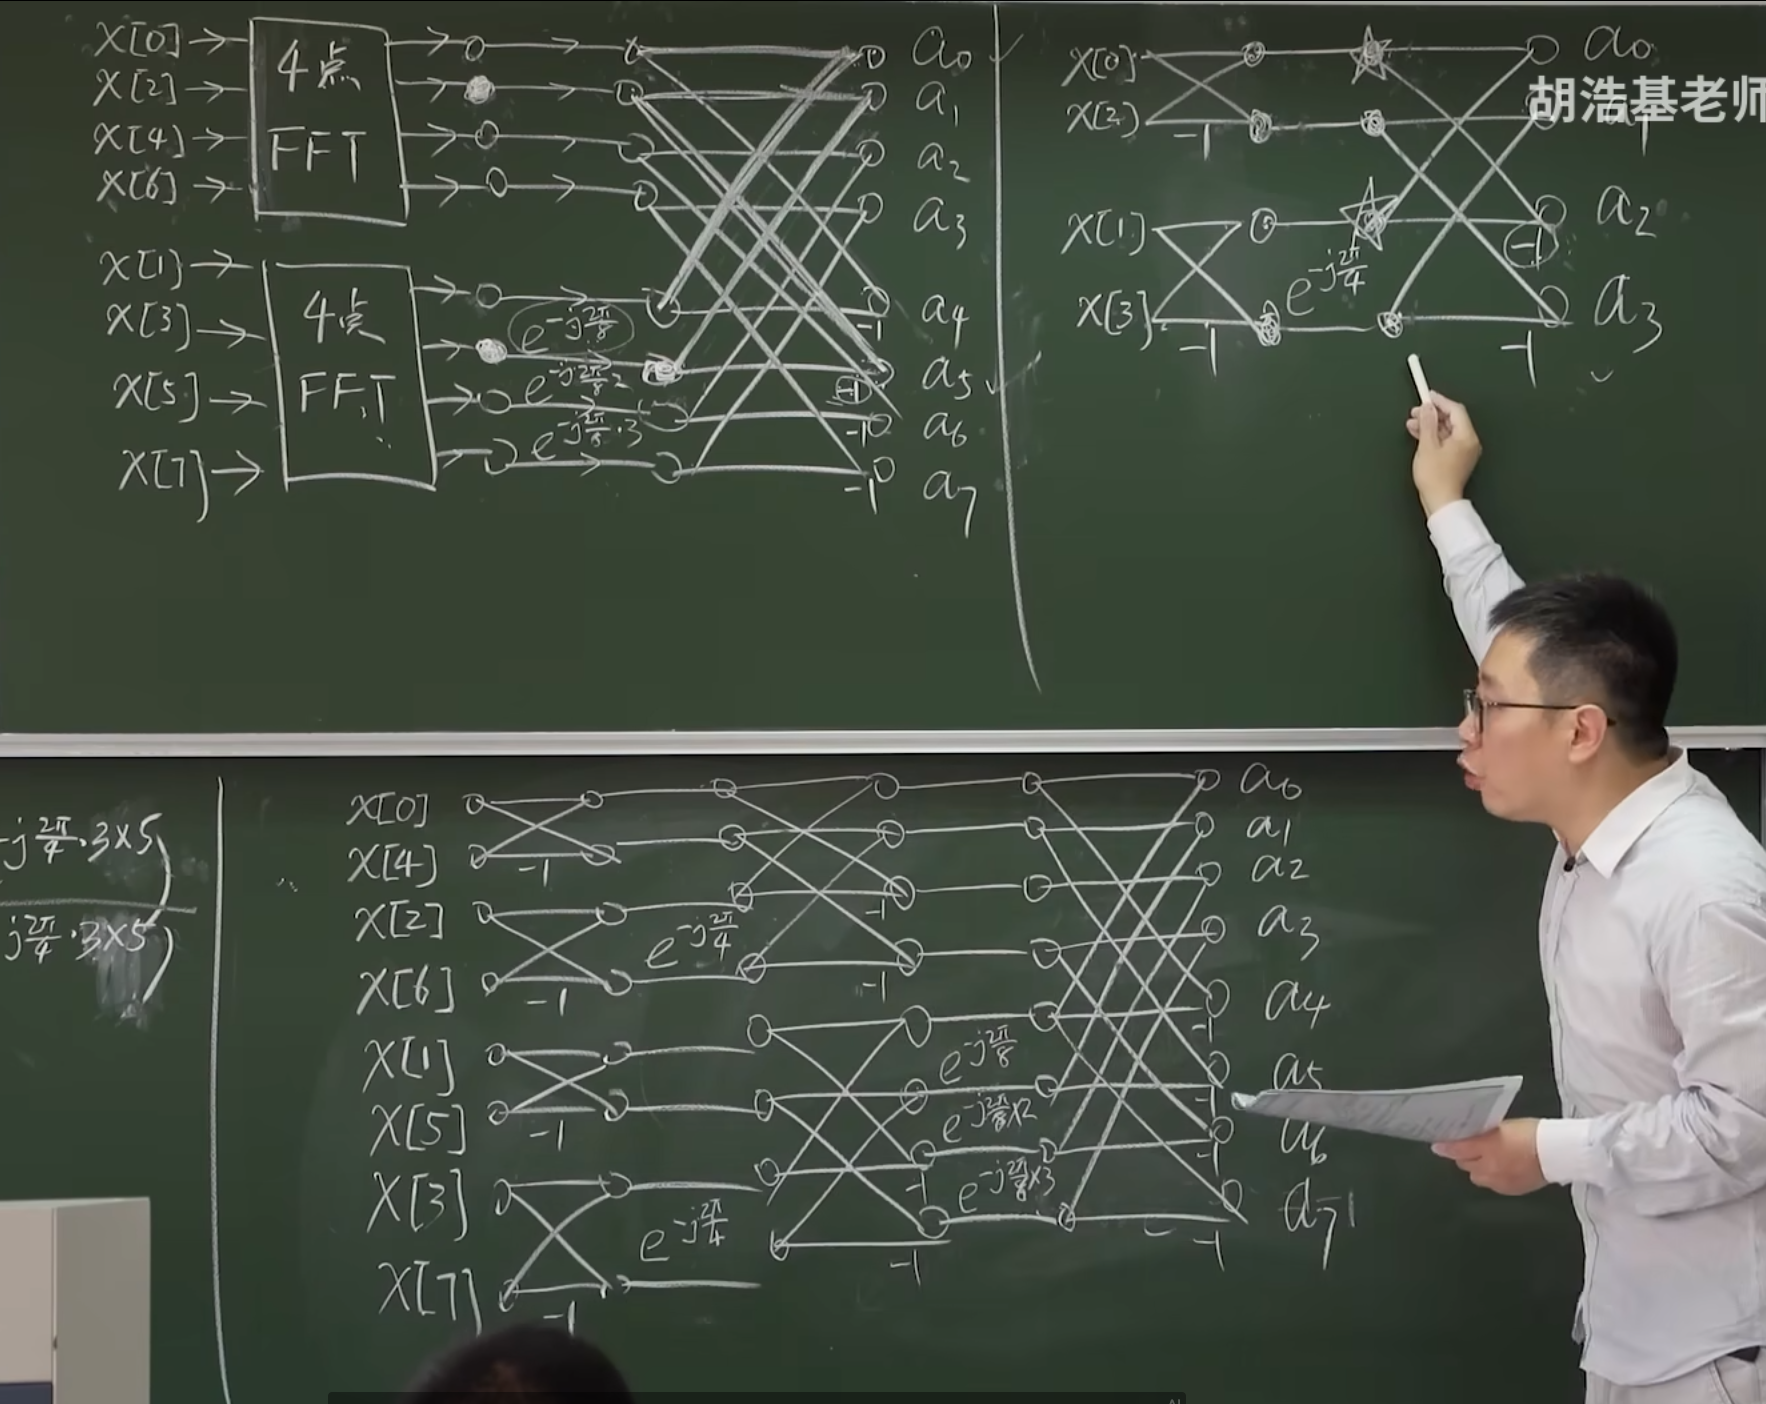 X[0]
X[2]
X[4]
X[6]
4点
FFT
X[1]
X[3]
X[5]
X[7]
4点
FFT
e^{-j\frac{2π}{8}}
e^{-j\frac{2π}{8}·2}
e^{-j\frac{2π}{8}·3}
-1
-1
-1
-1
a0
a1
a2
a3
a4
a5
a6
a7
X[0]
X[2]
-1
X[1]
X[3]
-1
e^{-j\frac{2π}{4}}
-1
-1
a0
a2
a3
胡浩基老师
-j\frac{2π}{4}·3×5
j\frac{2π}{4}·3×5
X[0]
X[4]
-1
X[2]
X[6]
-1
X[1]
X[5]
-1
X[3]
X[7]
-1
e^{-j\frac{2π}{4}}
e^{-j\frac{2π}{4}}
-1
-1
-1
-1
e^{-j\frac{2π}{8}}
e^{-j\frac{2π}{8}×2}
e^{-j\frac{2π}{8}×3}
-1
-1
-1
-1
a0
a1
a2
a3
a4
a5
a6
a7